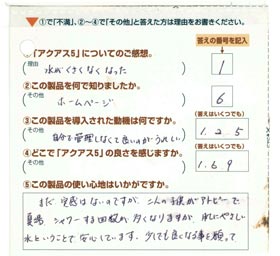 ①で「不満」、②~④で「その他」と答えた方は理由をお書きください。
答えの番号を記入
①「アクアス5」についてのご感想。
理由
水がくさくなくなった
1
②この製品を何で知りましたか。
その他
ホームページ
6
③この製品を導入された動機は何ですか。
(答えはいくつでも)
その他
自分で管理しなくて良いのがうれしい
1.2.5
④どこで「アクアス5」の良さを感じますか。
(答えはいくつでも)
その他
1.6.9
⑤この製品の使い心地はいかがですか。
まだ実感はないのですが、二人の子供がアトピーで
夏場シャワーする回数が多くなりますが、水にやさしい
水ということで安心しています。少しでも良くなる事を願って